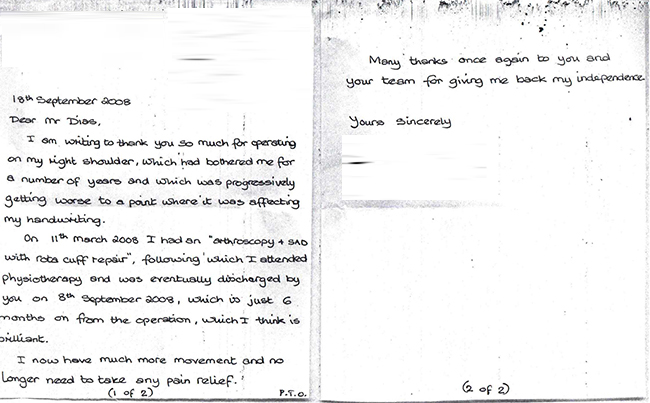 18th September 2008
Dear Mr Dias,
I am writing to thank you so much for operating
on my right shoulder, which had bothered me for
a number of years and which was progressively
getting worse to a point where it was affecting
my handwriting.
On 11th March 2008 I had an "arthroscopy + SAD
with rota cuff repair", following which I attended
physiotherapy and was eventually discharged by
you on 8th September 2008, which is just 6
months on from the operation, which I think is
brilliant.
I now have much more movement and no
longer need to take any pain relief.
(1 of 2)
P.T.O.
Many thanks once again to you and
your team for giving me back my independence
Yours sincerely
(2 of 2)